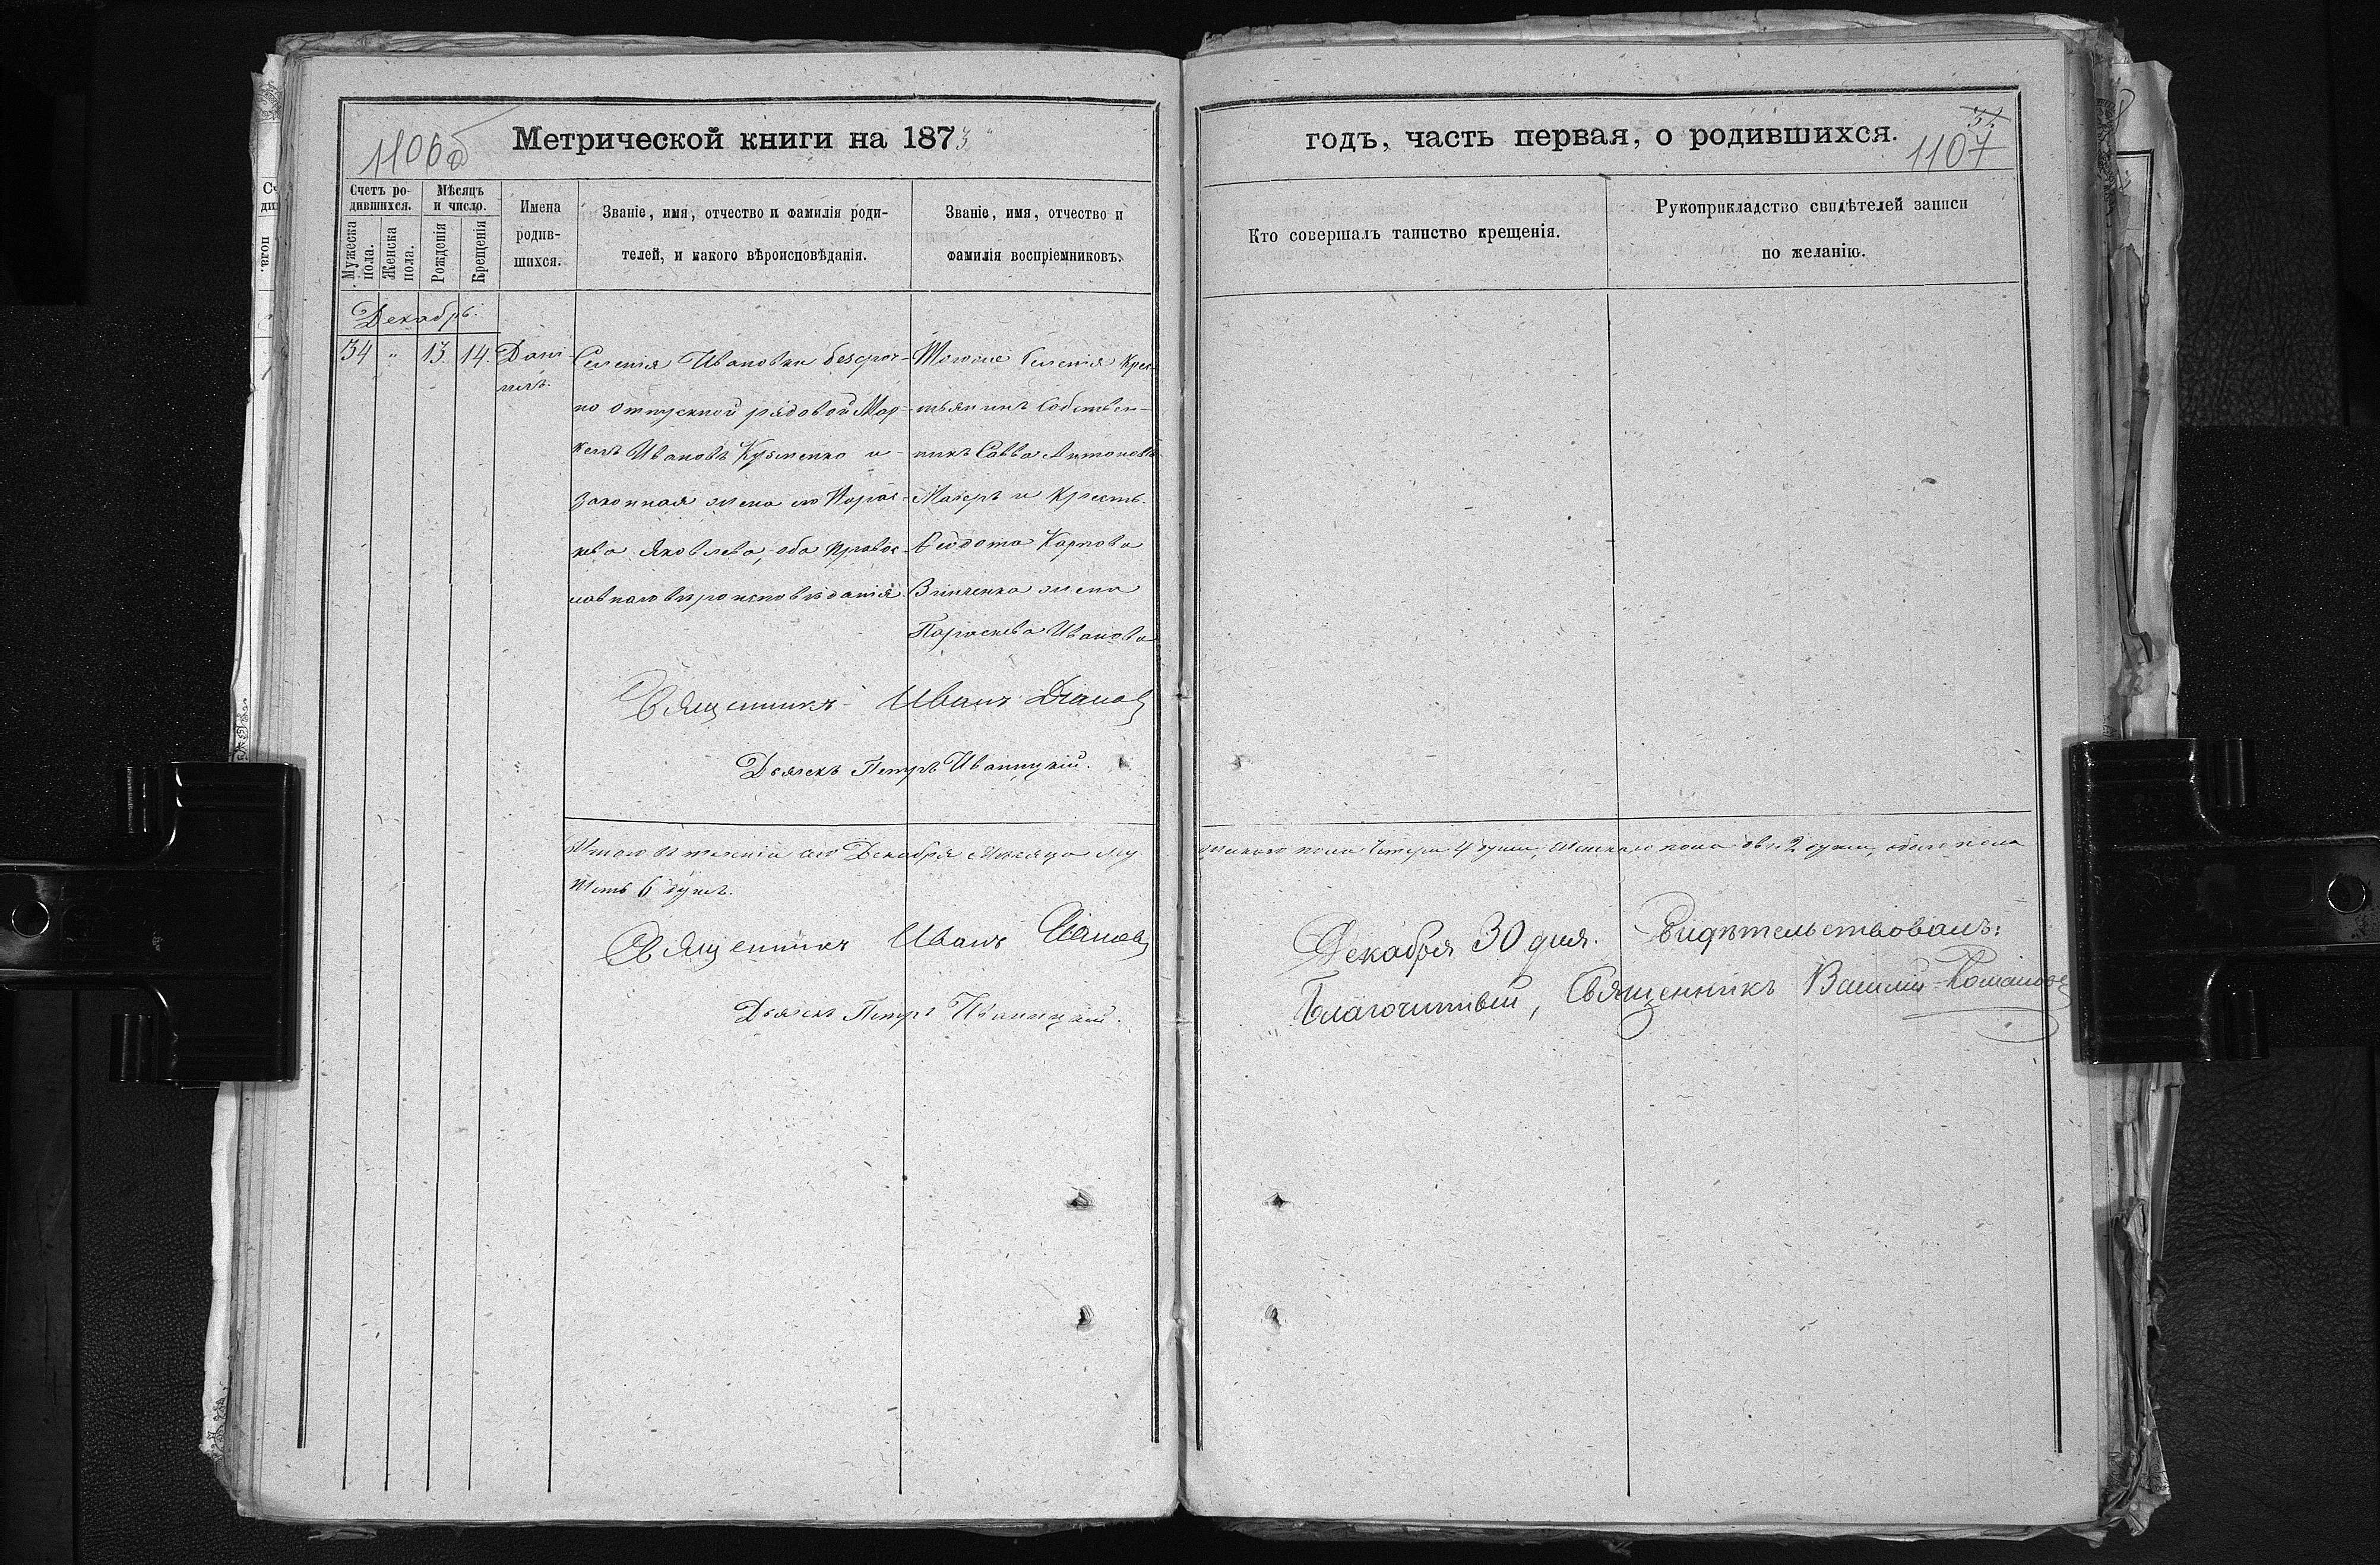 1106б
Метрической книги на 1873
годъ, часть первая, о родившихся.
1107
Счетъ ро-
дившихся.
Мѣсяцъ
и число.
Мужеска
пола.
Женска
пола.
Рожденія
Крещенія
Имена
родив-
шихся.
Званіе, имя, отчество и фамилія роди-
телей, и какого вѣроисповѣданія.
Званіе, имя, отчество и
фамилія воспріемниковъ.
Кто совершалъ таинство крещенія.
Рукоприкладство свидѣтелей записи
по желанію.
Декабрь.
34 " 13. 14. Дані-
илъ.
Селенія Ивановки безсроч-
но отпускной рядовой Мар-
келъ Ивановъ Кузменко и
законная жена его Парас-
кева Яковлева, оба правос-
лавнаго вѣроисповѣданія.
Тогоже селенія Крес-
тьянинъ Собствен-
никъ Савва Антоновъ
и Крестьян.
Ѳеодота Карпова
Винченка жена
Параскева Иванова
Священникъ Иванъ
Дьячекъ Петръ Иваницкій.
Итого въ теченіи сего Декабря Мѣсяца му
жескаго пола четыри 4 души, Женскаго пола двѣ 2 души, обоего пола
шесть 6 душъ.
Священникъ Иванъ
Дьячекъ Петръ Иваницкій.
Декабря 30 дня. Свидѣтельствовалъ:
Благочинный, Священникъ Василій Романовъ